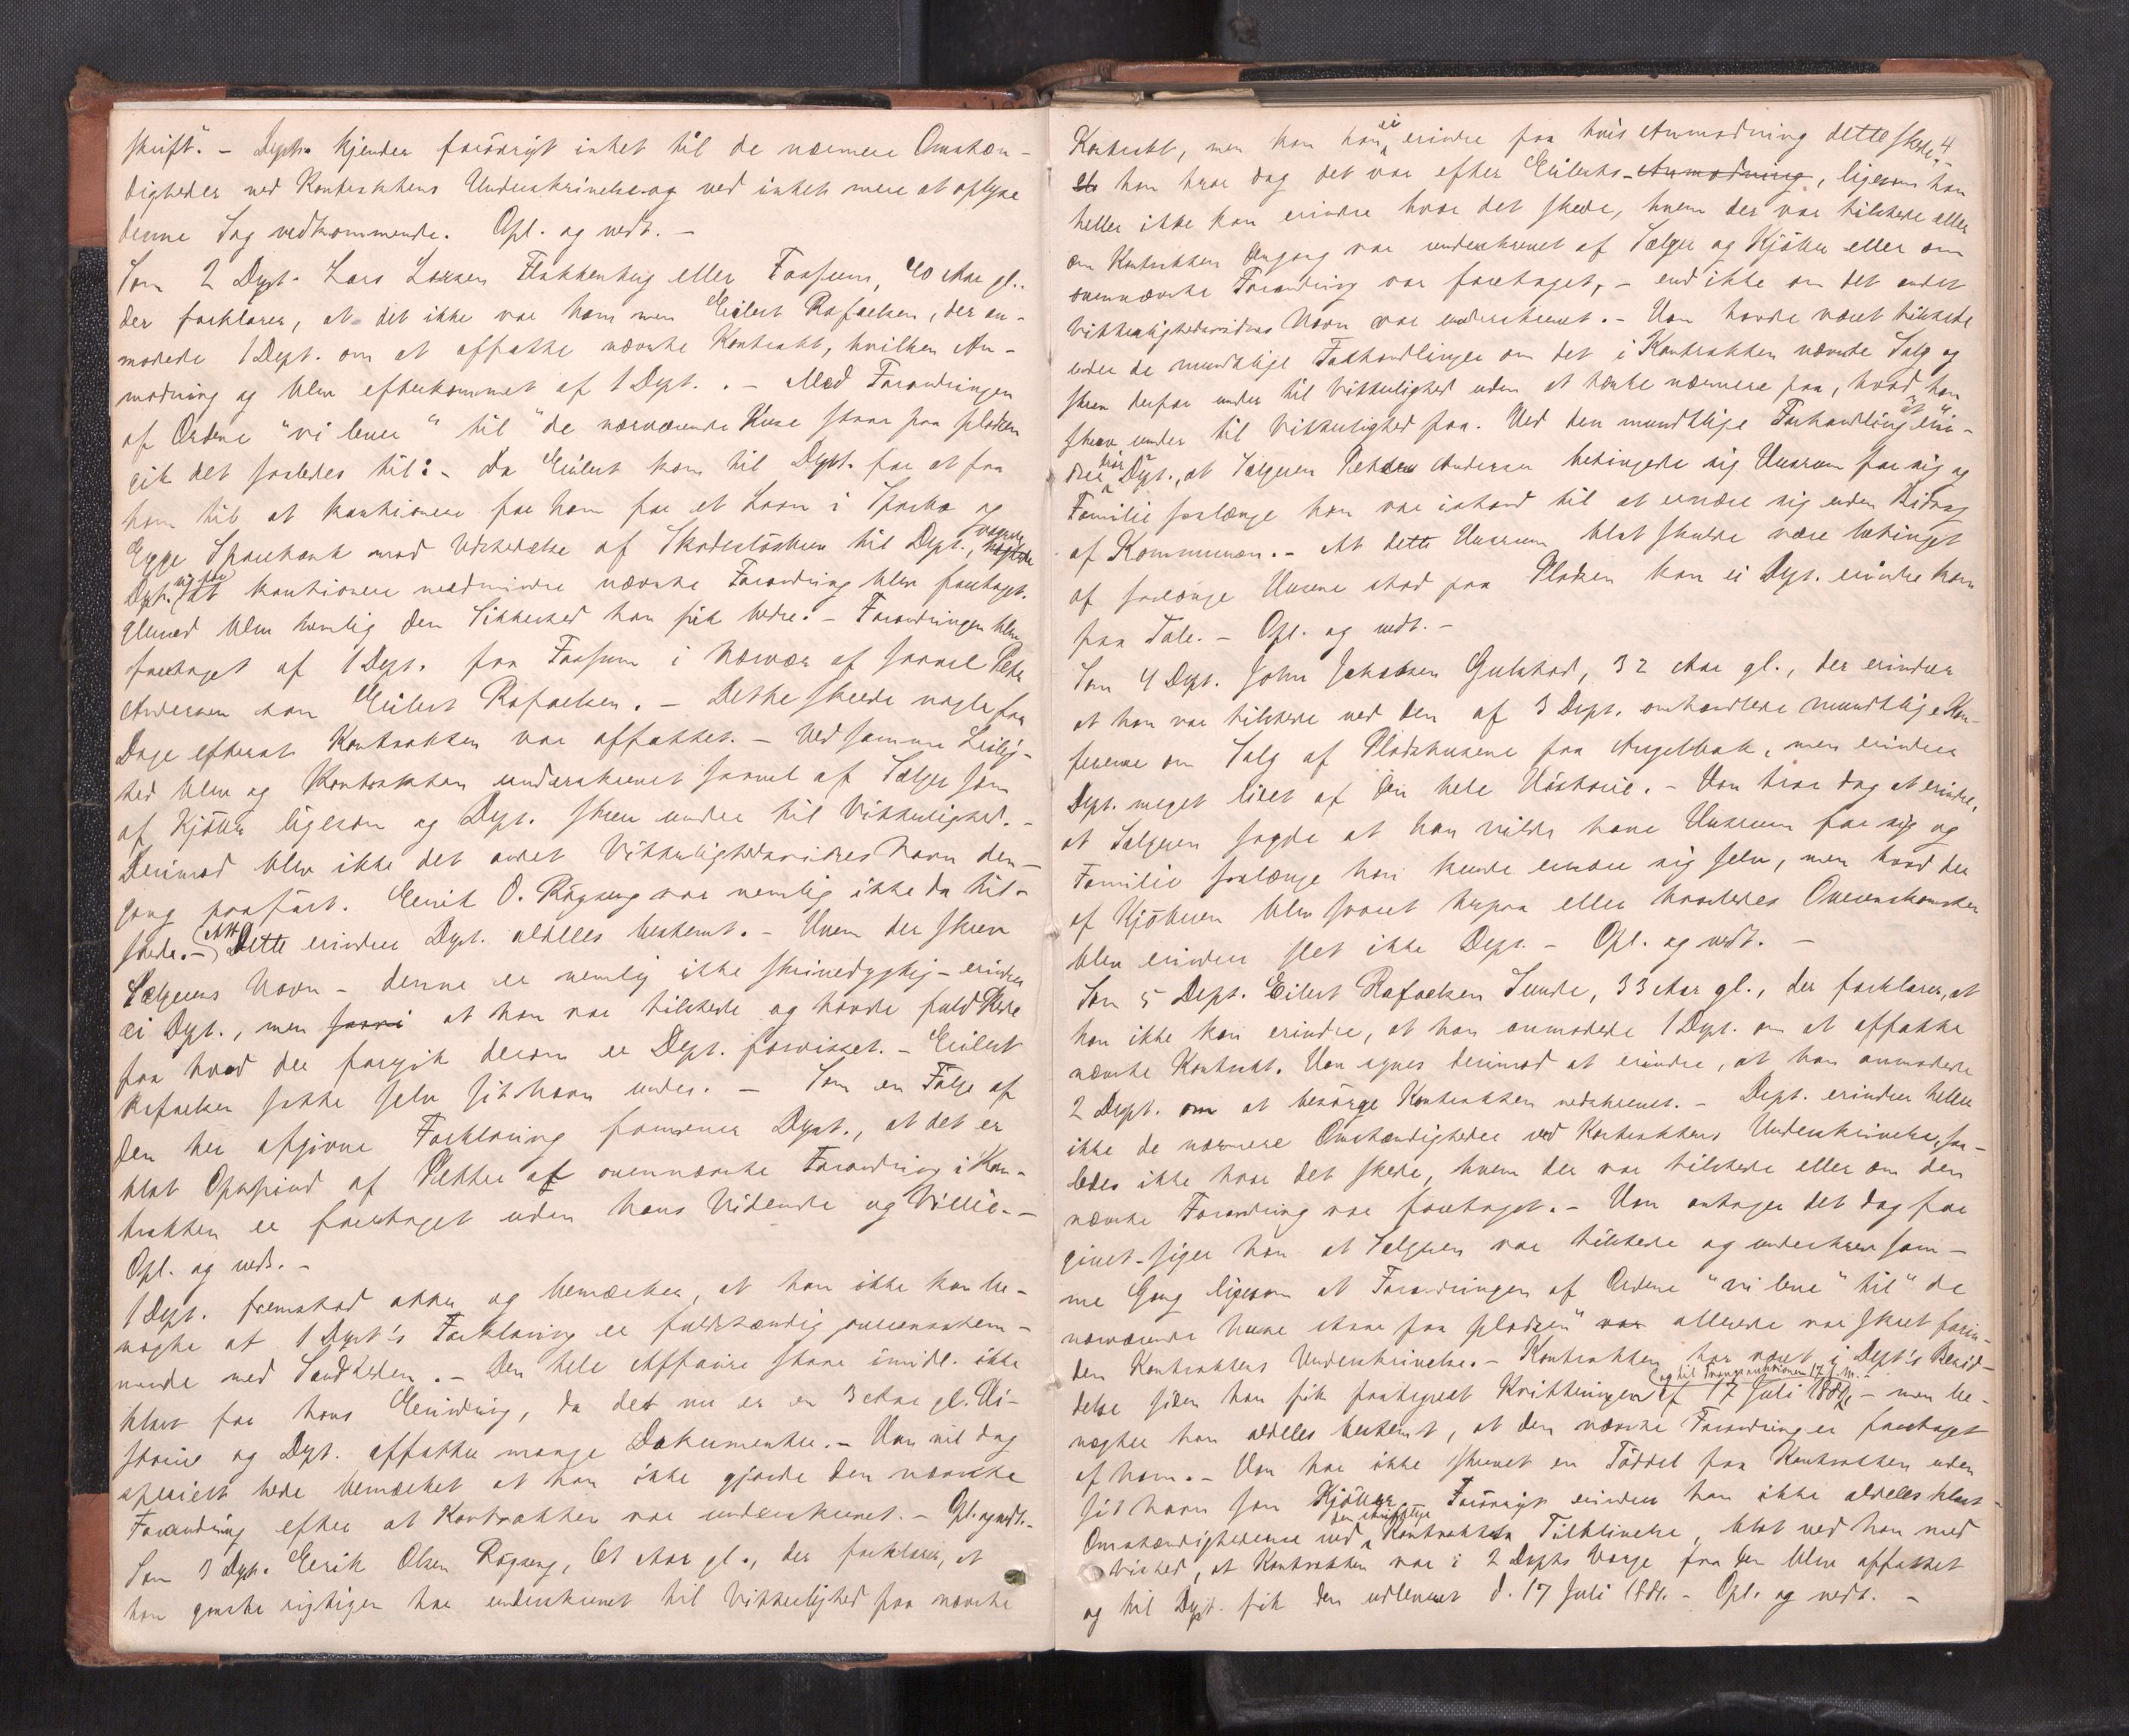 skrift." – Dept. kjender forövrigt intet til de nærmere Omstæn-
digheder ved Kontraktens Underskrivelse og ved intet mere at oplyse
denne Sag vedkommende. Opl. og vedt. –
Som 2 Dept. Lars Larsen Flakkenberg eller Fossum, 40 Aar gl.
der forklarer, at det ikke var ham men Eilert Rafaelsen, der an-
modede 1 Dept. om at affatte nævnte Kontrakt, hvilken An-
modning og blev efterkommet af 1 Dept. . – Med Forandringen
af Ordene "vi lever" til "de nærværende Huse staar paa pladsen
gik det saaledes til: – Da Eilert kom til Dept. for at faa
ham til at kautionere for ham for et Laan i Sparbo og
Egge Sparebank mod Udstedelse af Skadeslösbrev til Dept., vægrede
Dept. sig for at kautionere medmindre nævnte Forandring blev foretaget.
Herved blev nemlig den Sikkerhed han fik bedre. – Forandringen blev
foretaget af 1 Dept. paa Fossum i Nærvær af saavel Peter
Andersen som Eilert Rafaelsen. – Dette skede nogle faa
Dage efterat Kontrakten var affattet. – Ved samme Leilig-
hed blev og Kontrakten underskrevet saavel af Sælger som
af Kjöber ligesom og Dept. skrev under til Vitterlighed. –
Derimod blev ikke det andet Vitterlighedsvidnes Navn den-
gang paafört. Eerik O. Rögseng var nemlig ikke da til-
stede. – Dette erindrer Dept. aldeles bestemt. – Hvem der skrev
Sælgerens Navn – denne er nemlig ikke skrivedygtig – erindrer
ei Dept., men at han var tilstede og havde fuld Rede
paa hvad der foregik derom er Dept. forvisset. – Eilert
Rafaelsen satte selv sit Navn under. – Som en Fölge af
den her afgivne Forklaring formener Dept., at det er
blot Opspind af Petter at ovennævnte Forandring i Kon-
trakten er foretaget uden hans Vidende og Villie. –
Opl. og vedt. –
1 Dept. fremstod atter og bemærker, at han ikke kan be-
nægte at Dept's Forklaring er fuldstændig overensstem-
mende med Sandheden. – Den hele Affaire staar imidl. ikke
klart for hans Erindring, da det nu er en 3 Aar gl. Hi-
storie og Dept. affatter mange Dokumenter. – Han vil dog
specielt have bemærket at han ikke gjorde den nævnte
Forandring efter at Kontrakten var underskrevet. – Opl. og vedt. –
Som 3 Dept. Eerik Olsen Rögseng, 61 Aar gl., der forklarer, at
han ganske rigtigen har underskrevet til Vitterlighed paa nævnte
4
Kontrakt, men kan han ei erindre paa hvis Anmodning dette skede. –
han tror dog det var efter Eilerts Anmodning, ligesom han
heller ikke kan erindre hvor det skede, hvem der var tilstede eller
om Kontrakten dengang var underskrevet af Sælger og Kjöber eller om
ovennævnte Forandring var foretaget, – end ikke om det andet
Vitterlighedsvidnes Navn var underskrevet. – Han havde været tilstede
under de mundtlige Forhandlinger om det i Kontrakten nævnte Salg og
skrev derfor under til Vitterlighed uden at tænke nærmere paa, hvad han
skrev under til Vitterlighed paa. Ved den mundtlige Forhandling erin-
drer tror Dept., at Sælgeren Petter Andersen betingede sig Husrum for sig og
Familie saalænge han var istand til at ernære sig uden Bidrag
af Kommunen. – At dette Husrum blot skulde være betinget
af saalænge Husene stod paa Pladsen kan ei Dept. erindre kom
paa Tale. – Opl. og vedt. –
Som 4 Dept. John Jakobsen Gulstad, 32 Aar gl., der erindrer
at han var tilstede ved den af 3 Dept. omhandlede mundtlige Kon-
ference om Salg af Pladshusene paa Angelbak, men erindrer
Dept. meget lidet af den hele Historie. – Han tror dog at erindre,
at Sælgeren sagde at han vilde have Husrum for sig og
Familie saalænge han kunde ernære sig selv, men hvad der
af Kjöberen blev svaret herpaa eller hvorledes Overenskomsten
blev erindrer slet ikke Dept. – Opl. og vedt. –
Som 5 Dept. Eilert Rafaelsen Sunde, 33 Aar gl., der forklarer, at
han ikke kan erindre, at han anmodede 1 Dept. om at affatte
nævnte Kontrakt. Han synes derimod at erindre, at han anmodede
2 Dept. om at besörge Kontrakten nedskrevet. – Dept. erindrer heller
ikke de nærmere Omstændigheder ved Kontraktens Underskrivelse, saa-
ledes ikke hvor det skede, hvem der var tilstede eller om den
nævnte Forandring var foretaget. – Han antager det dog for
givet siger han at Sælgeren var tilstede og underskrev sam-
me Gang ligesom at Forandringen af Ordene "vi leve" til "de
nærværende huse staar paa pladsen" allerede var skeet foren-
den Kontraktens Underskrivelse. – Kontrakten har været i Dept's Besid-
delse siden han fik paategnet Kvitteringen af 17 Juli 1881, – og til men be-
nægter han aldeles bestemt, at den nævnte Forandring er foretaget
af ham. – Han har ikke skrevet en Töddel paa Kontrakten uden
sit Navn som Kjöber. – Forövrigt erindrer han ikke aldeles klart
Omstændighederne ved den skriftlige Kontrakts Tilblivelse, blot ved han med
Vished, at Kontrakten var i 2 Depts Værge fra den blev affattet
og til Dept. fik den udleveret d. 17 Juli 1881. – Opl. og vedt. –